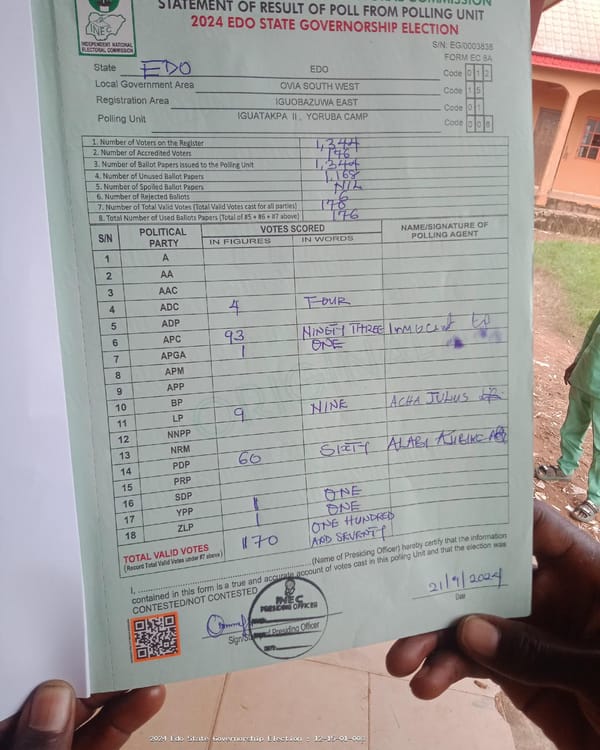 INEC
INDEPENDENT NATIONAL
ELECTORAL COMMISSION
STATEMENT OF RESULT OF POLL FROM POLLING UNIT
2024 EDO STATE GOVERNORSHIP ELECTION
S/N: EG/0003838
FORM EC 8A
State EDO EDO Code 0 1 2
Local Government Area OVIA SOUTH WEST Code 1 5
Registration Area IGUOBAZUWA EAST Code 0 1
Polling Unit IGUATAKPA II , YORUBA CAMP Code 0 0 8
1. Number of Voters on the Register 1,344
2. Number of Accredited Voters 176
3. Number of Ballot Papers Issued to the Polling Unit 1,344
4. Number of Unused Ballot Papers 1,168
5. Number of Spoiled Ballot Papers NIL
6. Number of Rejected Ballots
7. Number of Total Valid Votes (Total Valid Votes cast for all parties) 178
8. Total Number of Used Ballots Papers (Total of #5 + #6 + #7 above) 176
S/N POLITICAL PARTY VOTES SCORED NAME/SIGNATURE OF POLLING AGENT
IN FIGURES IN WORDS
1 A
2 AA
3 AAC
4 ADC 4 FOUR
5 ADP
6 APC 93 NINETY THREE
7 APGA 1 ONE
8 APM
9 APP
10 BP
11 LP 9 NINE ACHA JULIUS
12 NNPP
13 NRM
14 PDP 60 SIXTY ALABI
15 PRP
16 SDP
17 YPP 1 ONE
18 ZLP 1 ONE
TOTAL VALID VOTES 170 ONE HUNDRED AND SEVENTY
(Record Total Valid Votes under #7 above)
I, (Name of Presiding Officer) hereby certify that the information
contained in this form is a true and accurate account of votes cast in this polling Unit and that the election was
CONTESTED/NOT CONTESTED
INEC
PRESIDING OFFICER
Presiding Officer
21/9/2024
Date
2024 Edo State Governorship Election : 12-15-01-008